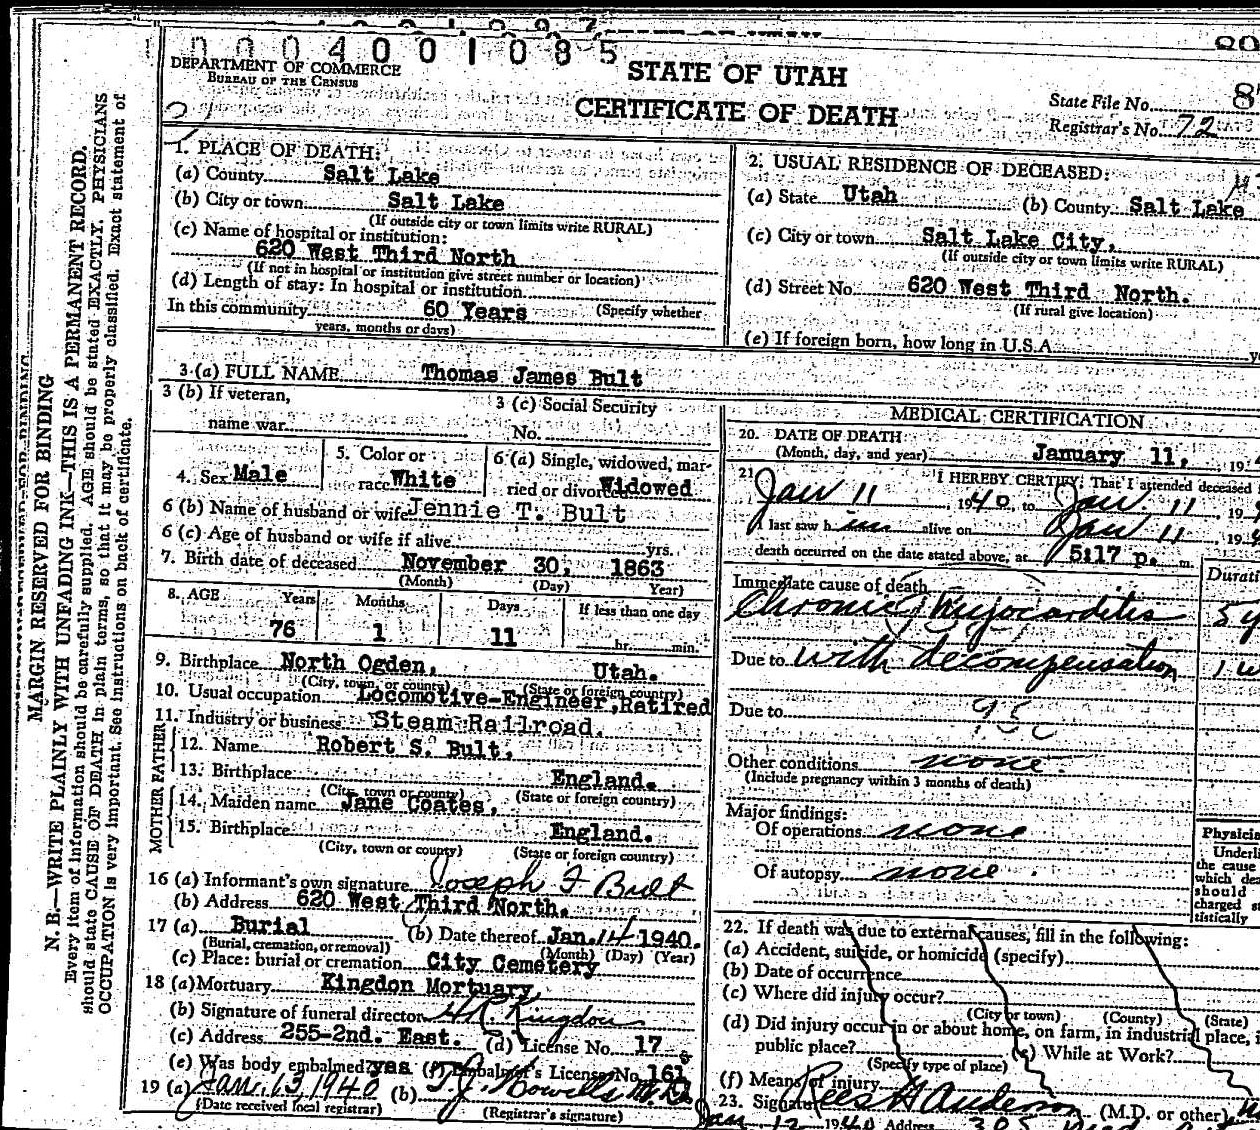 0 0 0 4 0 0 1 0 8 5
DEPARTMENT OF COMMERCE
BUREAU OF THE CENSUS
STATE OF UTAH
CERTIFICATE OF DEATH
State File No. 8
Registrar's No. 72
1. PLACE OF DEATH:
(a) County Salt Lake
(b) City or town Salt Lake
(If outside city or town limits write RURAL)
(c) Name of hospital or institution:
620 West Third North
(If not in hospital or institution give street number or location)
(d) Length of stay: In hospital or institution
In this community 60 Years (Specify whether
years, months or days)
2. USUAL RESIDENCE OF DECEASED:
(a) State Utah (b) County Salt Lake
(c) City or town Salt Lake City,
(If outside city or town limits write RURAL)
(d) Street No. 620 West Third North.
(If rural give location)
(e) If foreign born, how long in U.S.A.
3 (a) FULL NAME Thomas James Bult
3 (b) If veteran,
name war
3 (c) Social Security
No.
4. Sex Male
5. Color or
race White
6 (a) Single, widowed, mar-
ried or divorced Widowed
6 (b) Name of husband or wife Jennie T. Bult
6 (c) Age of husband or wife if alive yrs.
7. Birth date of deceased November 30, 1863
(Month) (Day) Year)
8. AGE Years Months Days If less than one day
76 1 11 hr. min.
9. Birthplace North Ogden, Utah.
(City, town, or county) (State or foreign country)
10. Usual occupation Locomotive-Engineer,Ratired
11. Industry or business Steam Railroad.
FATHER
12. Name Robert S. Bult,
13. Birthplace England.
(City, town or county) (State or foreign country)
MOTHER
14. Maiden name Jane Coates,
15. Birthplace England.
(City, town or county) (State or foreign country)
16 (a) Informant's own signature Joseph F Bult
(b) Address 620 West Third North.
17 (a) Burial (b) Date thereof Jan. 14 1940.
(Burial, cremation, or removal) (Month) (Day) (Year)
(c) Place: burial or cremation City Cemetery
18 (a) Mortuary Kingdon Mortuary
(b) Signature of funeral director Kingdon
(c) Address 255-2nd. East. (d) License No. 17
(e) Was body embalmed? yes (f) Embalmer's License No. 161
19 (a) Jan. 13, 1940 (b) T.J. Howells M.D.
(Date received local registrar) (Registrar's signature)
MEDICAL CERTIFICATION
20. DATE OF DEATH
(Month, day, and year) January 11, 19
21. I HEREBY CERTIFY: That I attended deceased
Jan 11, 1940, to Jan. 11 19
I last saw him alive on Jan 11 19
death occurred on the date stated above, at 5:17 p. m.
Immediate cause of death
Chronic Myocarditis 5 y
Due to with decompensation 1 w
Due to
Other conditions none.
(Include pregnancy within 3 months of death)
Major findings:
Of operations none
Of autopsy none.
Durati
Physicia
Underli
the cause
which dea
should
charged st
tistically
22. If death was due to external causes, fill in the following:
(a) Accident, suicide, or homicide (specify)
(b) Date of occurrence
(c) Where did injury occur?
(City or town) (County) (State)
(d) Did injury occur in or about home, on farm, in industrial place, i
public place? (e) While at Work?
(Specify type of place)
(f) Means of injury
23. Signature Rees H Anderson (M.D. or other)
Jan. 12 1940 Address 305
MARGIN RESERVED FOR BINDING
N. B.—WRITE PLAINLY WITH UNFADING INK—THIS IS A PERMANENT RECORD.
Every item of information should be carefully supplied. AGE should be stated EXACTLY. PHYSICIANS
should state CAUSE OF DEATH in plain terms, so that it may be properly classified. Exact statement of
OCCUPATION is very important. See instructions on back of certificate.